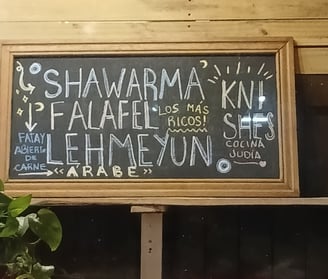 SHAWARMA
FALAFEL
LOS MÁS
RICOS!
LEHMEYUN.
FATAY
ABIERTO
DE
CARNE
<<ARABE>>
KNI
SHES
COCINA
JUDÍA